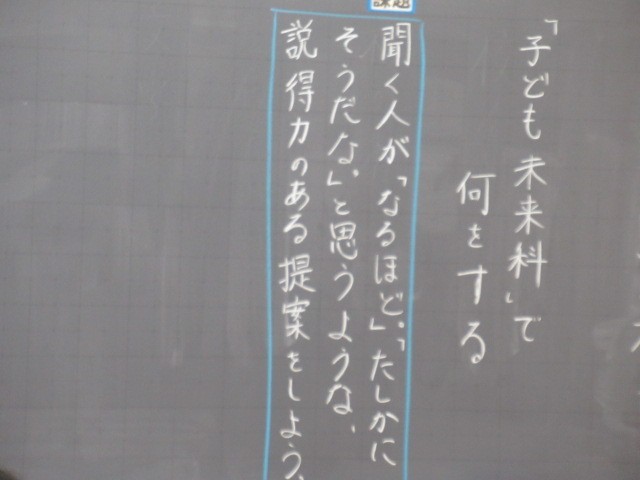 「子ども未来科」で
何をする
課題
聞く人が「なるほど」「たしかに
そうだな。」と思うような、
説得力のある提案をしよう、